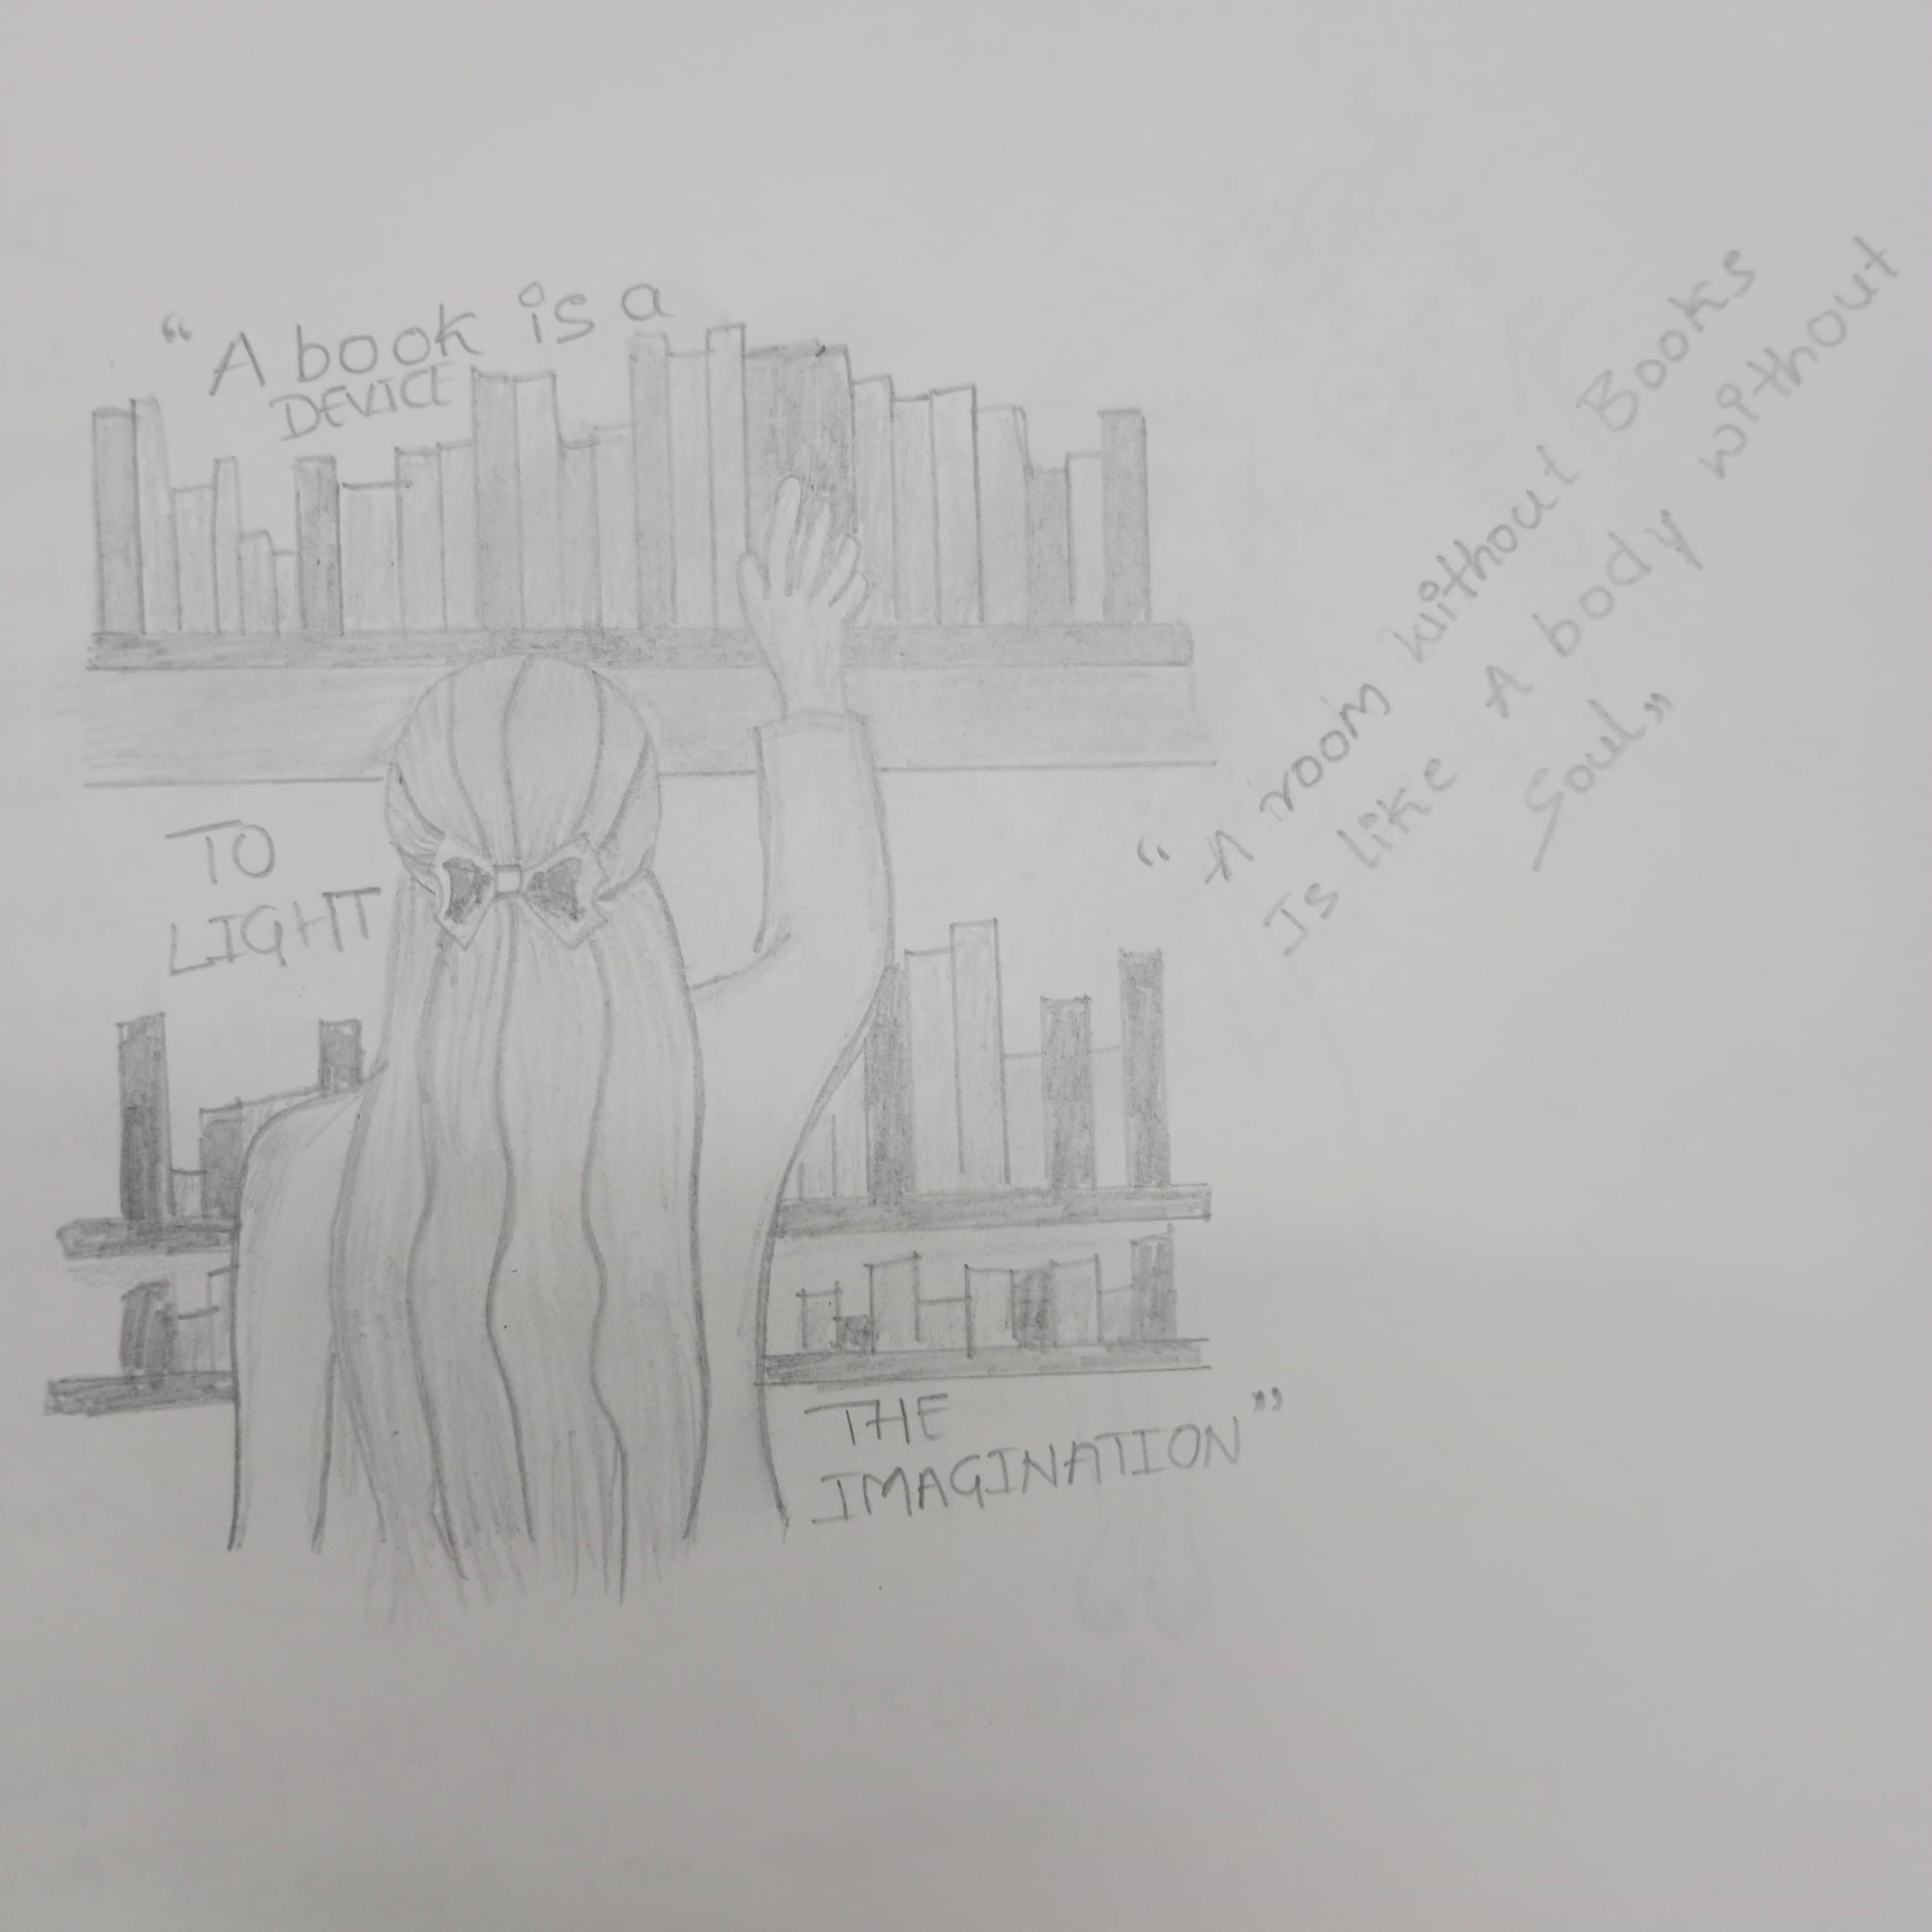 “A book is a
DEVICE
TO
LIGHT
THE
IMAGINATION”
“A room without Books
Is like A body without
Soul”
put you in TROUBLE